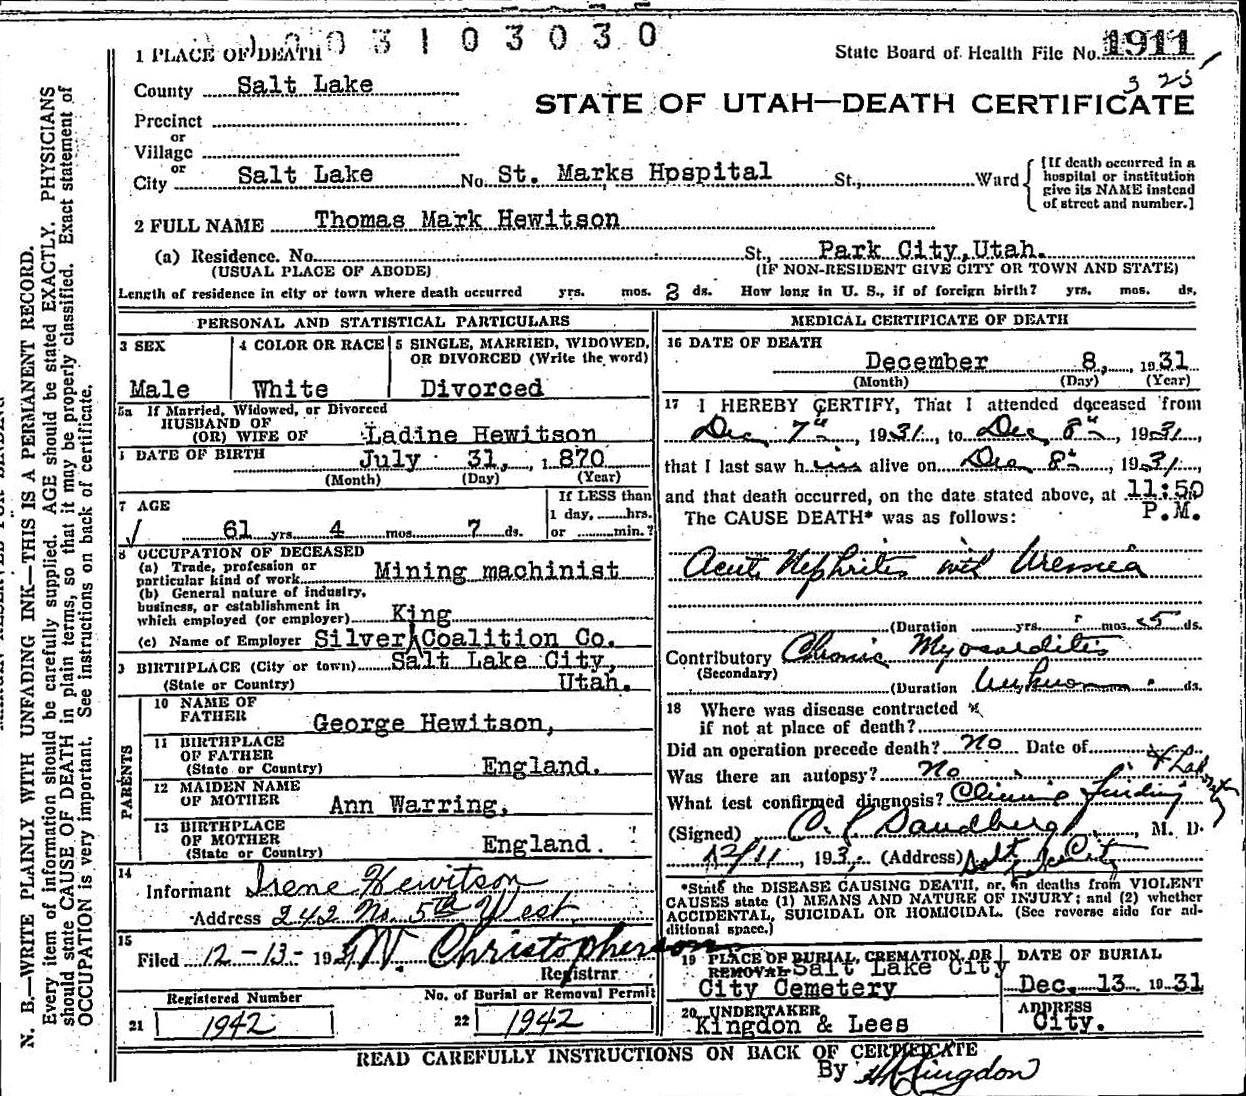 003103030
1 PLACE OF DEATH
State Board of Health File No. 1911
3 25
County Salt Lake
STATE OF UTAH—DEATH CERTIFICATE
Precinct
or
Village
or
City Salt Lake No. St. Marks Hpspital St., Ward
[If death occurred in a hospital or institution give its NAME instead of street and number.]
2 FULL NAME Thomas Mark Hewitson
(a) Residence. No. St., Park City, Utah.
(USUAL PLACE OF ABODE) (IF NON-RESIDENT GIVE CITY OR TOWN AND STATE)
Length of residence in city or town where death occurred yrs. mos. 2 ds. How long in U. S., if of foreign birth? yrs. mos. ds.
PERSONAL AND STATISTICAL PARTICULARS
3 SEX 4 COLOR OR RACE 5 SINGLE, MARRIED, WIDOWED,
OR DIVORCED (Write the word)
Male White Divorced
5a If Married, Widowed, or Divorced
HUSBAND OF
(OR) WIFE OF Ladine Hewitson
DATE OF BIRTH July 31, 1870
(Month) (Day) (Year)
7 AGE If LESS than
1 day, hrs.
61 yrs. 4 mos. 7 ds. or min.?
8 OCCUPATION OF DECEASED
(a) Trade, profession or
particular kind of work Mining machinist
(b) General nature of industry,
business, or establishment in
which employed (or employer) King
(c) Name of Employer Silver Coalition Co.
9 BIRTHPLACE (City or town) Salt Lake City,
(State or Country) Utah.
PARENTS
10 NAME OF
FATHER George Hewitson,
11 BIRTHPLACE
OF FATHER
(State or Country) England.
12 MAIDEN NAME
OF MOTHER Ann Warring,
13 BIRTHPLACE
OF MOTHER
(State or Country) England.
14
Informant Irene Hewitson
Address 242 No. 5th West
15
Filed 12-13- 1931 W. Christopherson
Registrar
Registered Number No. of Burial or Removal Permit
21 1942 22 1942
MEDICAL CERTIFICATE OF DEATH
16 DATE OF DEATH
December 8, 1931
(Month) (Day) (Year)
17 I HEREBY CERTIFY, That I attended deceased from
Dec 7th, 1931, to Dec 8th 1931,
that I last saw him alive on Dec 8th, 1931,
and that death occurred, on the date stated above, at 11:50
P.M.
The CAUSE DEATH* was as follows:
Acute Nephritis with Uremia
(Duration yrs. mos. 5 ds.
Contributory Chronic Myocarditis
(Secondary)
(Duration Unknown ds.
18 Where was disease contracted
if not at place of death?
Did an operation precede death? No Date of
Was there an autopsy? No
What test confirmed diagnosis? Clinic finding & Laboratory
(Signed) Sandberg, M. D.
12/11, 193 (Address) Salt Lake City
*State the DISEASE CAUSING DEATH, or, in deaths from VIOLENT
CAUSES state (1) MEANS AND NATURE OF INJURY; and (2) whether
ACCIDENTAL, SUICIDAL OR HOMICIDAL. (See reverse side for ad-
ditional space.)
19 PLACE OF BURIAL, CREMATION, OR DATE OF BURIAL
REMOVAL Salt Lake City
City Cemetery Dec. 13 1931
20 UNDERTAKER ADDRESS
Kingdon & Lees City.
READ CAREFULLY INSTRUCTIONS ON BACK OF CERTIFICATE
By Kingdon
N. B.—WRITE PLAINLY WITH UNFADING INK—THIS IS A PERMANENT RECORD.
Every item of information should be carefully supplied. AGE should be stated EXACTLY. PHYSICIANS
should state CAUSE OF DEATH in plain terms, so that it may be properly classified. Exact statement of
OCCUPATION is very important. See instructions on back of certificate.